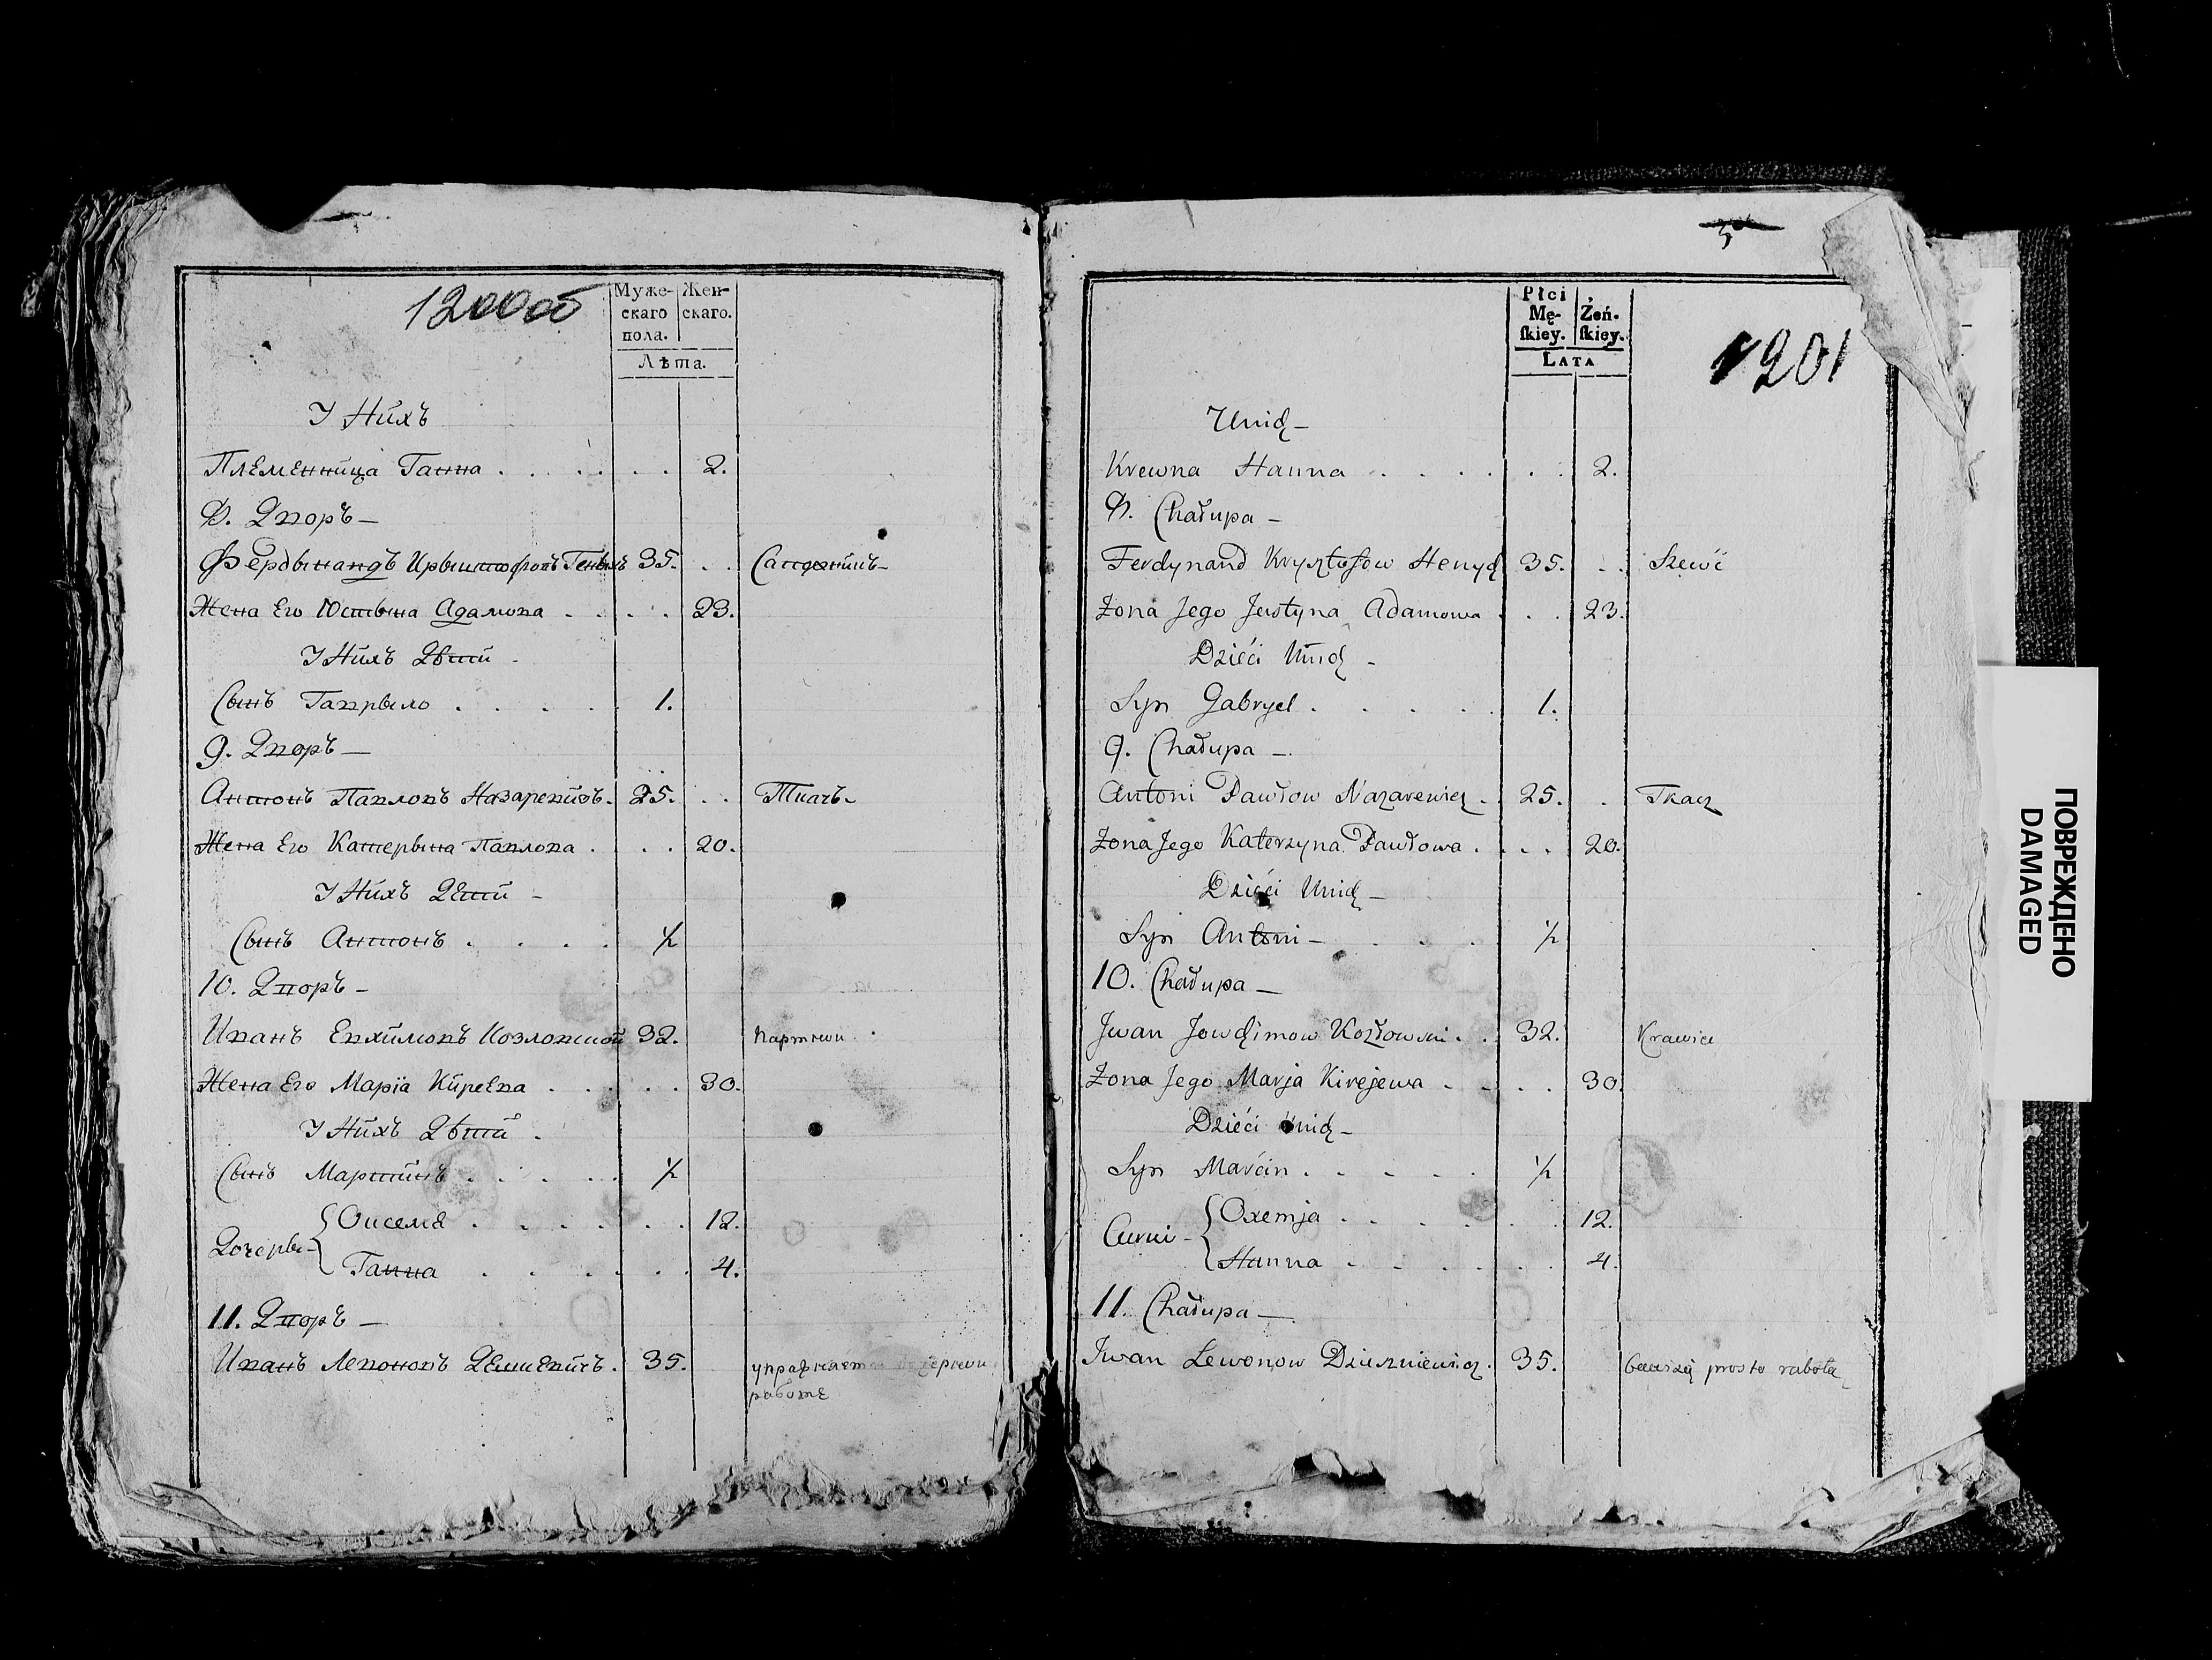 12000
Муже-
скаго
пола.
Жен-
скаго.
Лѣта.
У Нихъ
Племенница Ганна . . . . . . 2.
8. Дворъ —
Фердынандъ Крыштофовъ 35. . . Сапожникъ
Жена Его Юстына Адамова . . . . 23.
У Нихъ Дѣти -
Сынъ Гаврыло . . . . 1.
9. Дворъ —
Антонъ Павловъ Назаревичъ. 25. . . Ткачъ
Жена Его Катерына Павлова . . . 20.
У Нихъ Дети -
Сынъ Антонъ . . . . ½
10. Дворъ -
Иванъ Евхимовъ Козловской 32. Портной
Жена Его Марїа Кирѣева . . . . . 30.
У Нихъ Дѣти .
Сынъ Мартинъ . . . . . ½
Дочеры - { Оксемя . . . . . . 12.
Ганна . . . . . . 4.
11. Дворъ —
Иванъ Левоновъ 35. упражняется
работе
Płci
Mę-
ſkiey.
Żeń-
ſkiey.
LATA
1201
Unich
Krewna Hanna . . . . . . 2.
8. Chałupa -
Ferdynand Krysztofow Henych 35. . . Szewc
Żona Jego Justyna Adamowa . . . 23.
Dzieći Unich -
Syn Gabryel . . . . . 1.
9. Chałupa -
Antoni Pawłow Nazarewicz . 25. . Tkacz
Żona Jego Katerzyna Pawłowa . . . . 20.
Dzieći Unich -
Syn Antoni - . . . ½
10. Chałupa —
Jwan Jowchimow Kozłowski . . 32. Krawiec
Żona Jego Marja Kirejewa . . . . 30.
Dzieći Unich -
Syn Marćin . . . . . ½
Curki - { Oxemja . . . . . . 12.
Hanna . . . . . . 4.
11. Chałupa —
Jwan Lewonow 35. prosto rabota
ПОВРЕЖДЕНО
DAMAGED